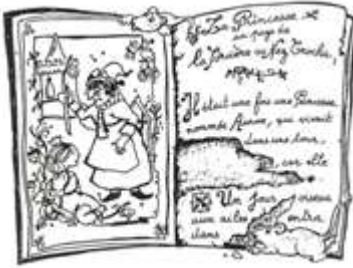 La Princesse
au pays de
la Sorcière au Nez Crochu,
Il était une fois une Princesse
nommée Aurore, qui vivait
dans une tour,
car elle
Un jour oiseau
aux ailes entra
dans